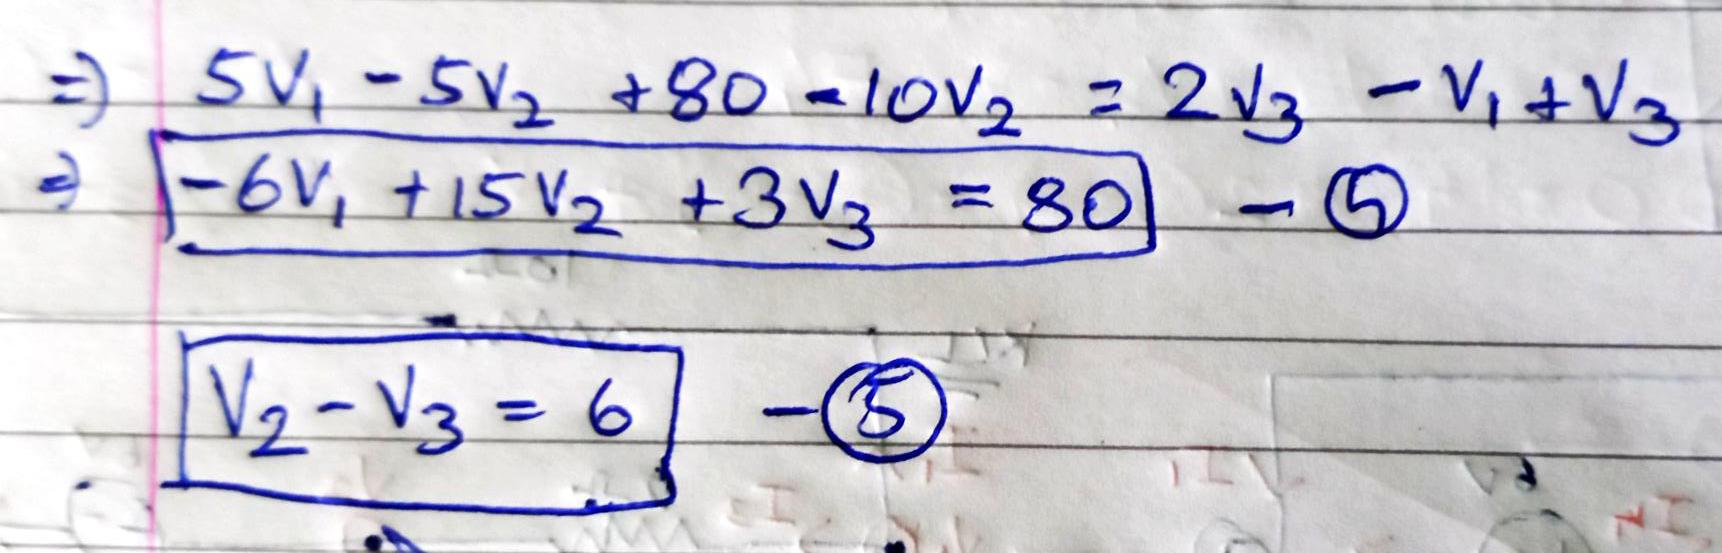 ⇒ 5V₁ - 5V₂ + 80 - 10V₂ = 2V₃ - V₁ + V₃
⇒ -6V₁ + 15V₂ + 3V₃ = 80 - ⑤
V₂ - V₃ = 6 - ⑤